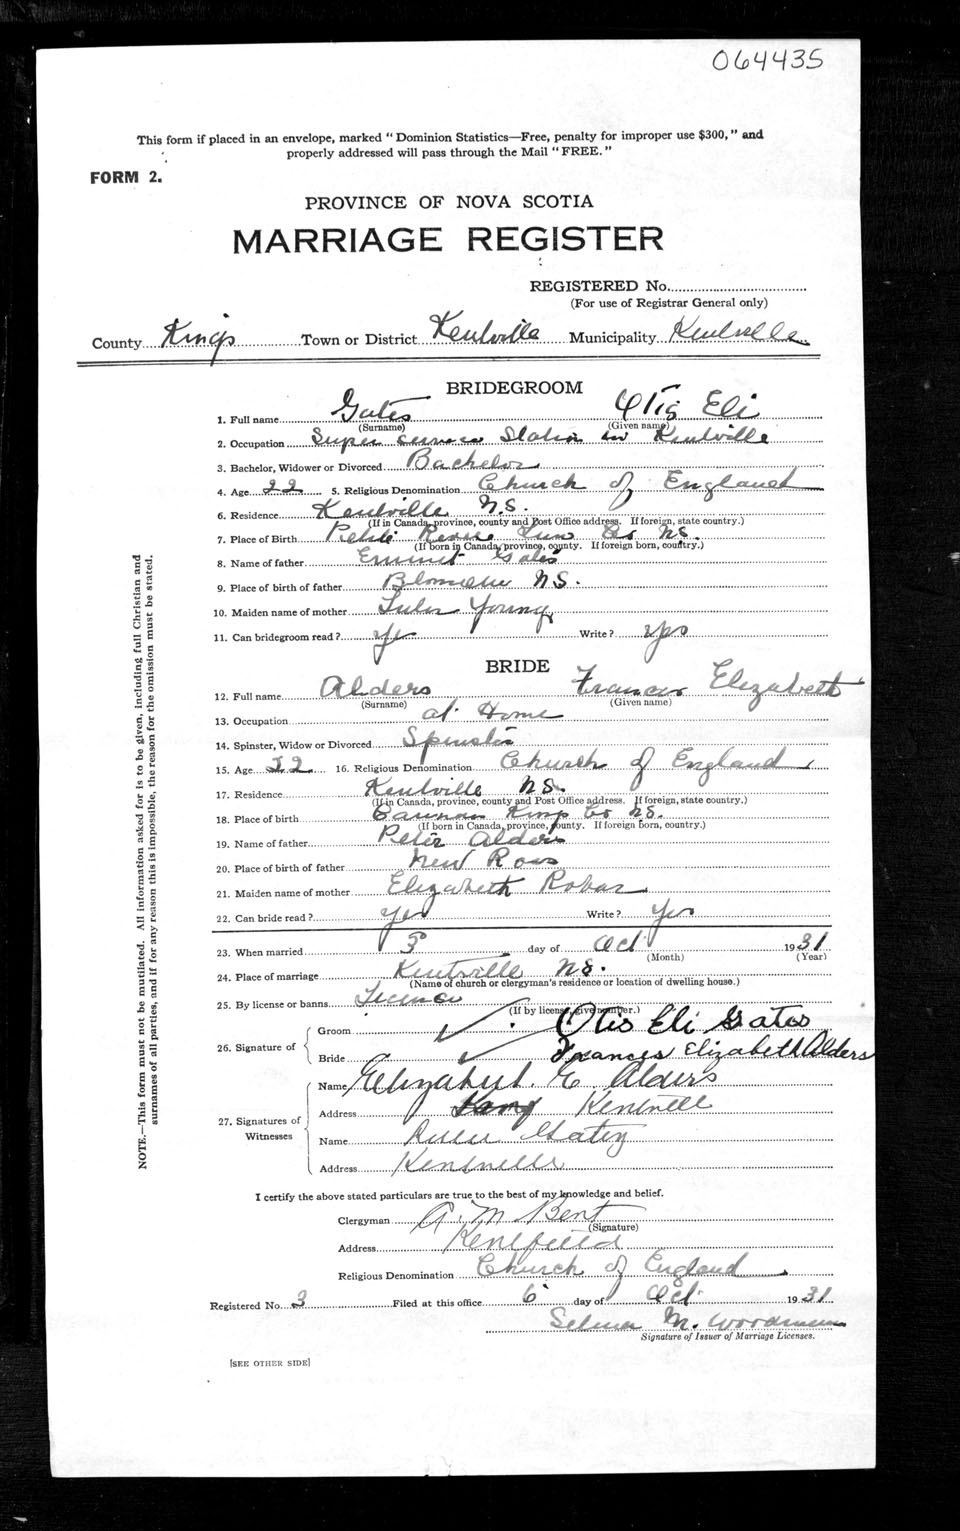 064435
This form if placed in an envelope, marked "Dominion Statistics—Free, penalty for improper use $300," and
properly addressed will pass through the Mail "FREE."
FORM 2.
PROVINCE OF NOVA SCOTIA
MARRIAGE REGISTER
REGISTERED No.
(For use of Registrar General only)
County Kings Town or District Kentville Municipality Kentville
BRIDEGROOM
1. Full name Gates Otis Eli
(Surname) (Given name)
2. Occupation Super service Station in Kentville
3. Bachelor, Widower or Divorced Bachelor
4. Age 22 5. Religious Denomination Church of England
6. Residence Kentville N.S.
(If in Canada, province, county and Post Office address. If foreign, state country.)
7. Place of Birth Co NS.
(If born in Canada, province, county. If foreign born, country.)
8. Name of father Gates
9. Place of birth of father NS.
10. Maiden name of mother Young
11. Can bridegroom read? yes Write? yes
BRIDE
12. Full name Alders Frances Elizabeth
(Surname) (Given name)
13. Occupation at Home
14. Spinster, Widow or Divorced Spinster
15. Age 22 16. Religious Denomination Church of England
17. Residence Kentville NS.
(If in Canada, province, county and Post Office address. If foreign, state country.)
18. Place of birth Kings Co NS.
(If born in Canada, province, county. If foreign born, country.)
19. Name of father Peter Alders
20. Place of birth of father New Ross
21. Maiden name of mother Elizabeth Robar
22. Can bride read? yes Write? yes
23. When married 3 day of Oct 1931
(Month) (Year)
24. Place of marriage Kentville NS.
(Name of church or clergyman's residence or location of dwelling house.)
25. By license or banns License
(If by license, give number.)
26. Signature of Groom Otis Eli Gates
Bride Frances Elizabeth Alders
27. Signatures of Witnesses
Name Elizabeth E Alders
Address Kentville
Name
Address Kentville
I certify the above stated particulars are true to the best of my knowledge and belief.
Clergyman A. M Bent
(Signature)
Address
Religious Denomination Church of England
Registered No. 3 Filed at this office 6 day of Oct 1931
Selma M.
Signature of Issuer of Marriage Licenses.
[SEE OTHER SIDE]
NOTE.—This form must not be mutilated. All information asked for is to be given, including full Christian and
surnames of all parties, and if for any reason this is impossible, the reason for the omission must be stated.